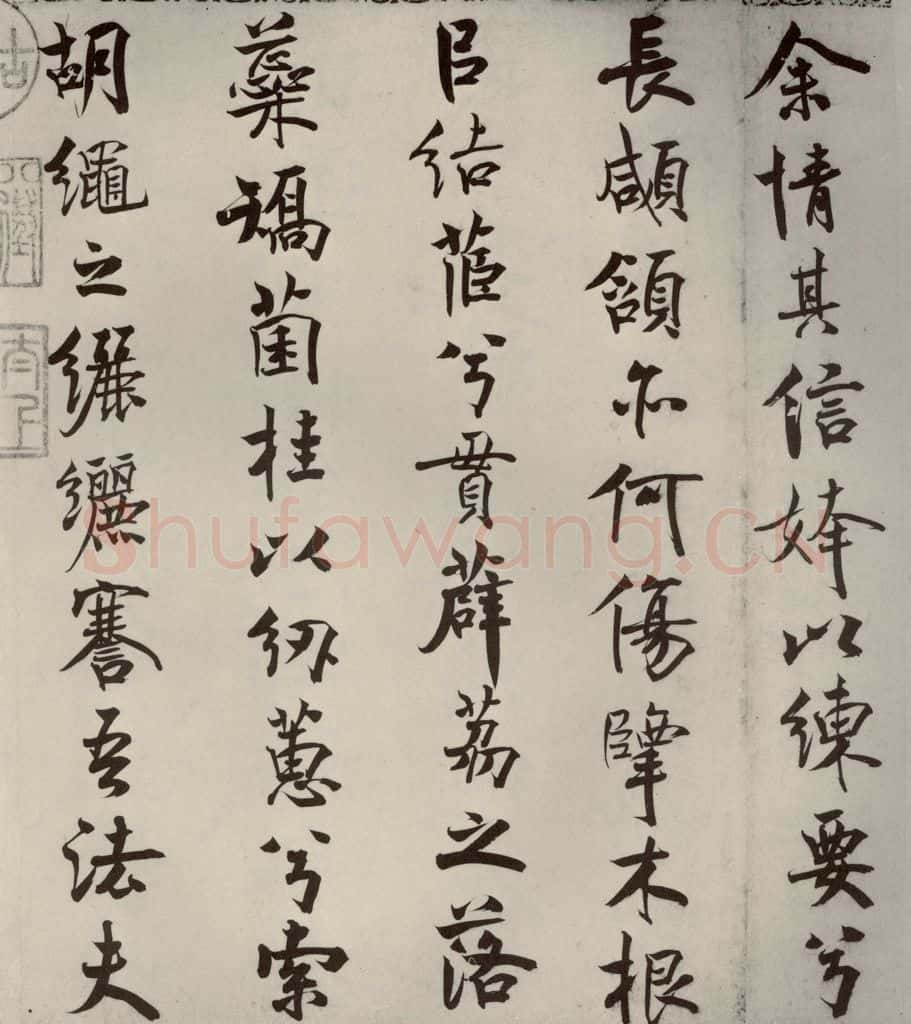 余情其信姱以練要兮
長顑頷亦何傷擥木根
㠯結茝兮貫薜荔之落
蘂矯菌桂以紉蕙兮索
胡繩之纚纚謇吾法夫
Shufawang.CN